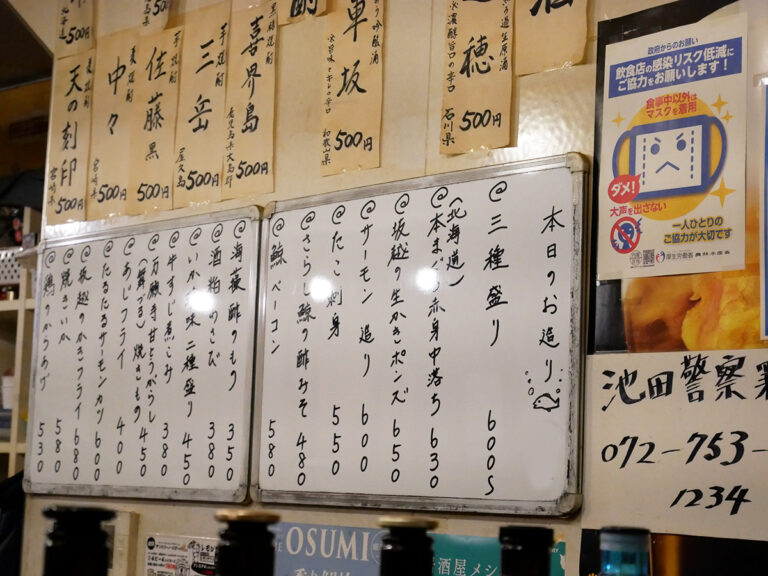 北海道
500円
島県
500円
麦焼酎
天の刻印
宮崎県
500円
麦焼酎
中々
宮崎県
500円
芋焼酎
佐藤 黒
500円
芋焼酎
三岳
屋久島
500円
黒糖焼酎
喜界島
鹿児島県大島郡
500円
酎
車坂
吟醸酒
旨味とキレの辛口
和歌山県
500円
生原酒
遊穂
濃醇旨口の辛口
石川県
500円
本日のお造り
@三種盛り 600〜
(北海道)
@本まぐろ赤身中落ち 630
@坂越の生かきポンズ 650
@サーモン造り 600
@たこ刺身 550
@さらし鯨の酢みそ 480
@鯨ベーコン 580
@海藻酢のもの 350
@酒粕わさび 380
@いか珍味二種盛り 450
@牛すじ煮こみ 380
@万願寺甘とうがらし
(舞づる)焼きもの 450
@あじフライ 400
@たるたるサーモンカツ 600
@坂越のかきフライ 680
@焼きいか 580
@鶏のからあげ 530
政府からのお願い
飲食店の感染リスク低減に
ご協力をお願いします!
食事中以外は
マスクを着用
ダメ!
大声を出さない
一人ひとりの
ご協力が大切です
厚生労働省 農林水産省
池田警察署
072-753-
1234
OSUMI
酒屋メシ